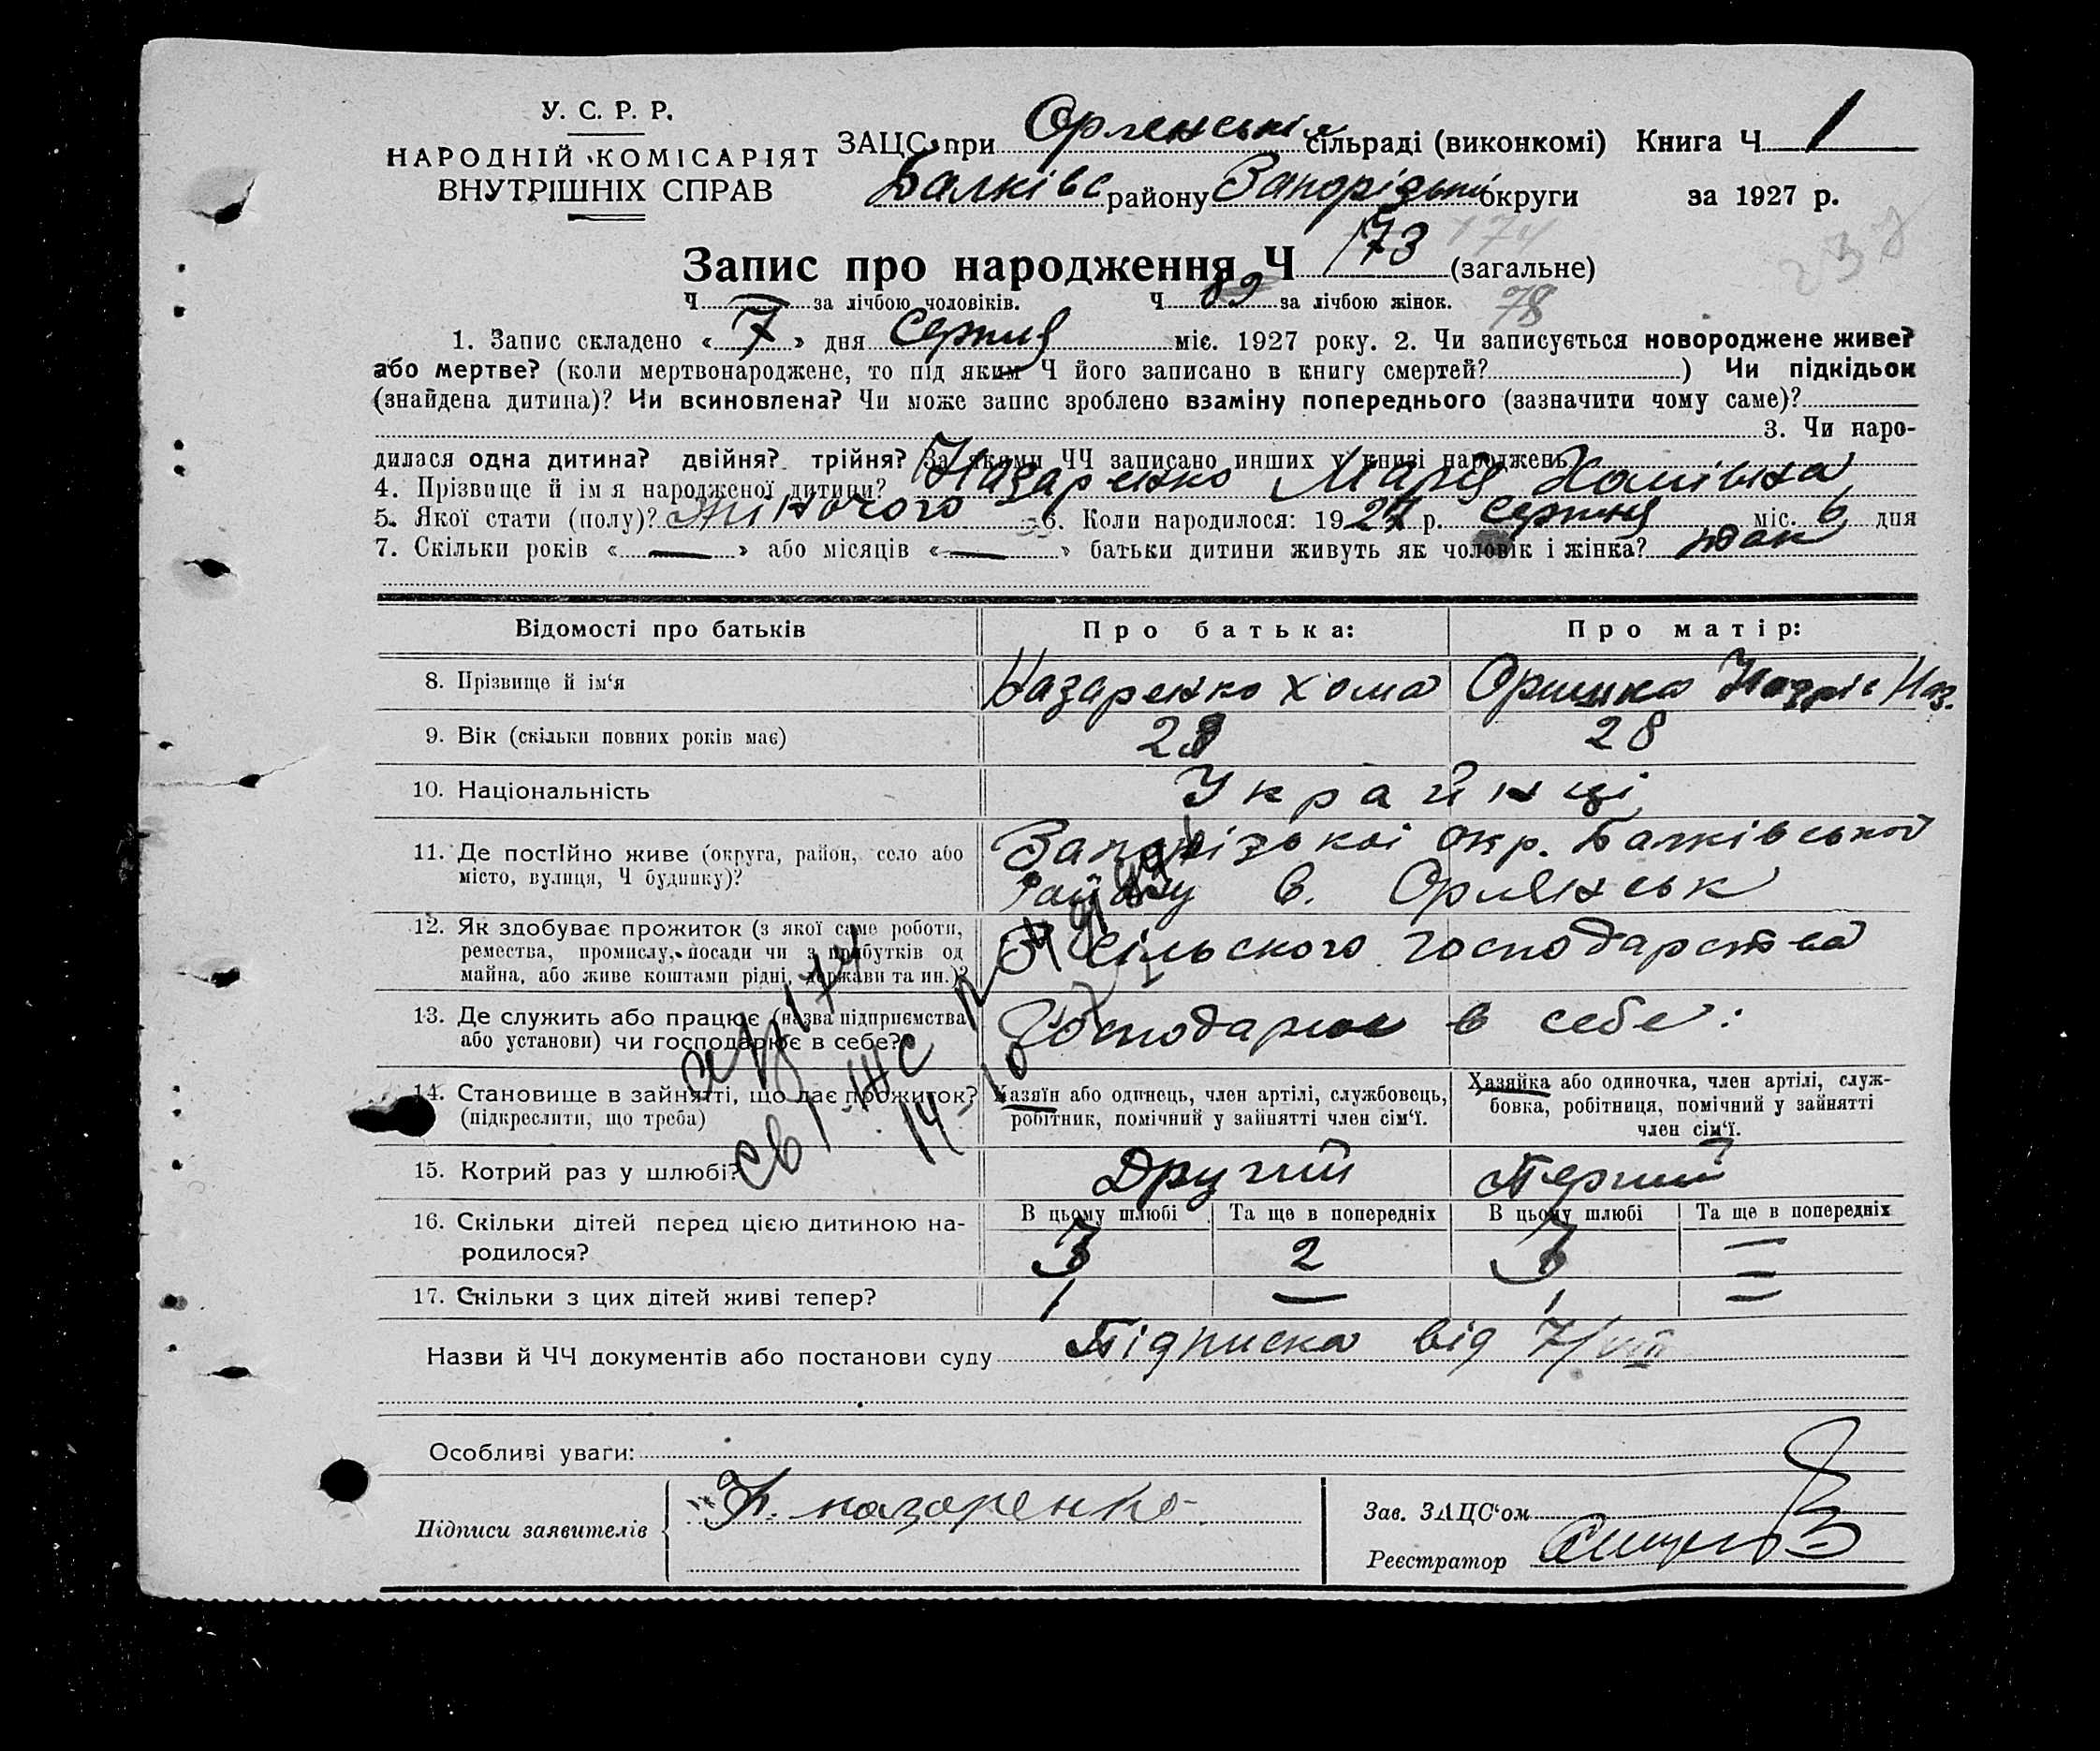 У. С. Р. Р.
НАРОДНІЙ КОМІСАРІЯТ
ВНУТРІШНІХ СПРАВ
ЗАЦС при Орленські сільраді (виконкомі) Книга Ч 1
Балківс району Запорізької округи за 1927 р.
Запис про народження Ч 173 174 (загальне)
Ч — за лічбою чоловіків. Ч 89 за лічбою жінок. 78
1. Запис складено « 7 » дня Серпня міс. 1927 року. 2. Чи записується новороджене живе?
або мертве? (коли мертвонароджене, то під яким Ч його записано в книгу смертей? ) Чи підкідьок
(знайдена дитина)? Чи всиновлена? Чи може запис зроблено взаміну попереднього (зазначити чому саме)?
3. Чи наро-
дилася одна дитина? двійня? трійня? За якими ЧЧ записано инших у книзі народжень
4. Прізвище й ім я народженої дитини? Назаренко Марія Хомівна
5. Якої стати (полу)? Жіночого 6. Коли народилося: 1927 р. серпня міс. 6 дня
7. Скільки років « — » або місяців « — » батьки дитини живуть як чоловік і жінка? так
Відомості про батьків Про батька: Про матір:
8. Прізвище й ім‘я Назаренко Хома Оришка Наз.
9. Вік (скільки повних років має) 28
10. Національність Украйнці
11. Де постійно живе (округа, район, село або Запорізької окр. Балківської
місто, вулиця, Ч будинку)? Району в. Орлянськ
12. Як здобуває прожиток (з якої саме роботи,
ремества, промислу, посади чи з прибутків од З сільского господарства
майна, або живе коштами рідні, держави та ин.)?
13. Де служить або працює (назва підприємства
або установи) чи господарює в себе? Господарює в себе:
14. Становище в зайнятті, що дає прожиток? Хазяїн або одинець, член артілі, службовець, Хазяйка або одиночка, член артілі, служ-
(підкреслити, що треба) робітник, помічний у зайнятті член сім‘ї. бовка, робітниця, помічний у зайнятті
член сім‘ї.
15. Котрий раз у шлюбі? Другий Перший
16. Скільки дітей перед цією дитиною на- В цьому шлюбі Та ще в попередніх В цьому шлюбі Та ще в попередніх
родилося? 3 2 3 —
17. Скільки з цих дітей живі тепер? 1 — 1 —
Назви й ЧЧ документів або постанови суду Підписка від 7/VIII
Особливі уваги:
Підписи заявителів Х. назаренко
Зав. ЗАЦС‘ом
Реєстратор